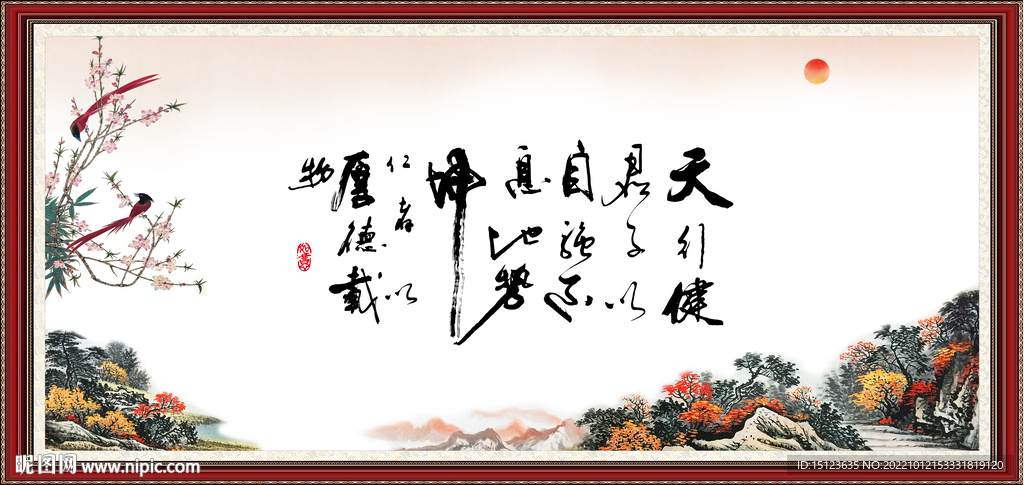 天行健
君子以
自強不
息地勢
坤
仁者以
厚德載
物
昵图网 www.nipic.com
ID:15123635 NO:20221012153331819120